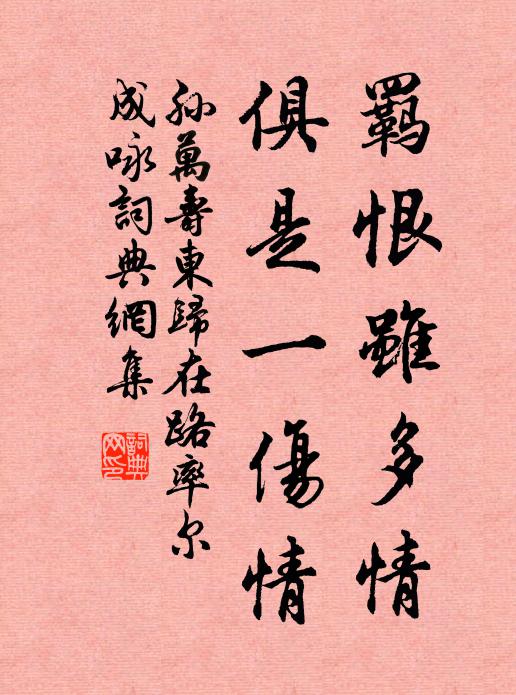 羇恨雖多情
俱是一傷情
孫萬壽東歸在路率尔
成咏詞典網集
詞典網印